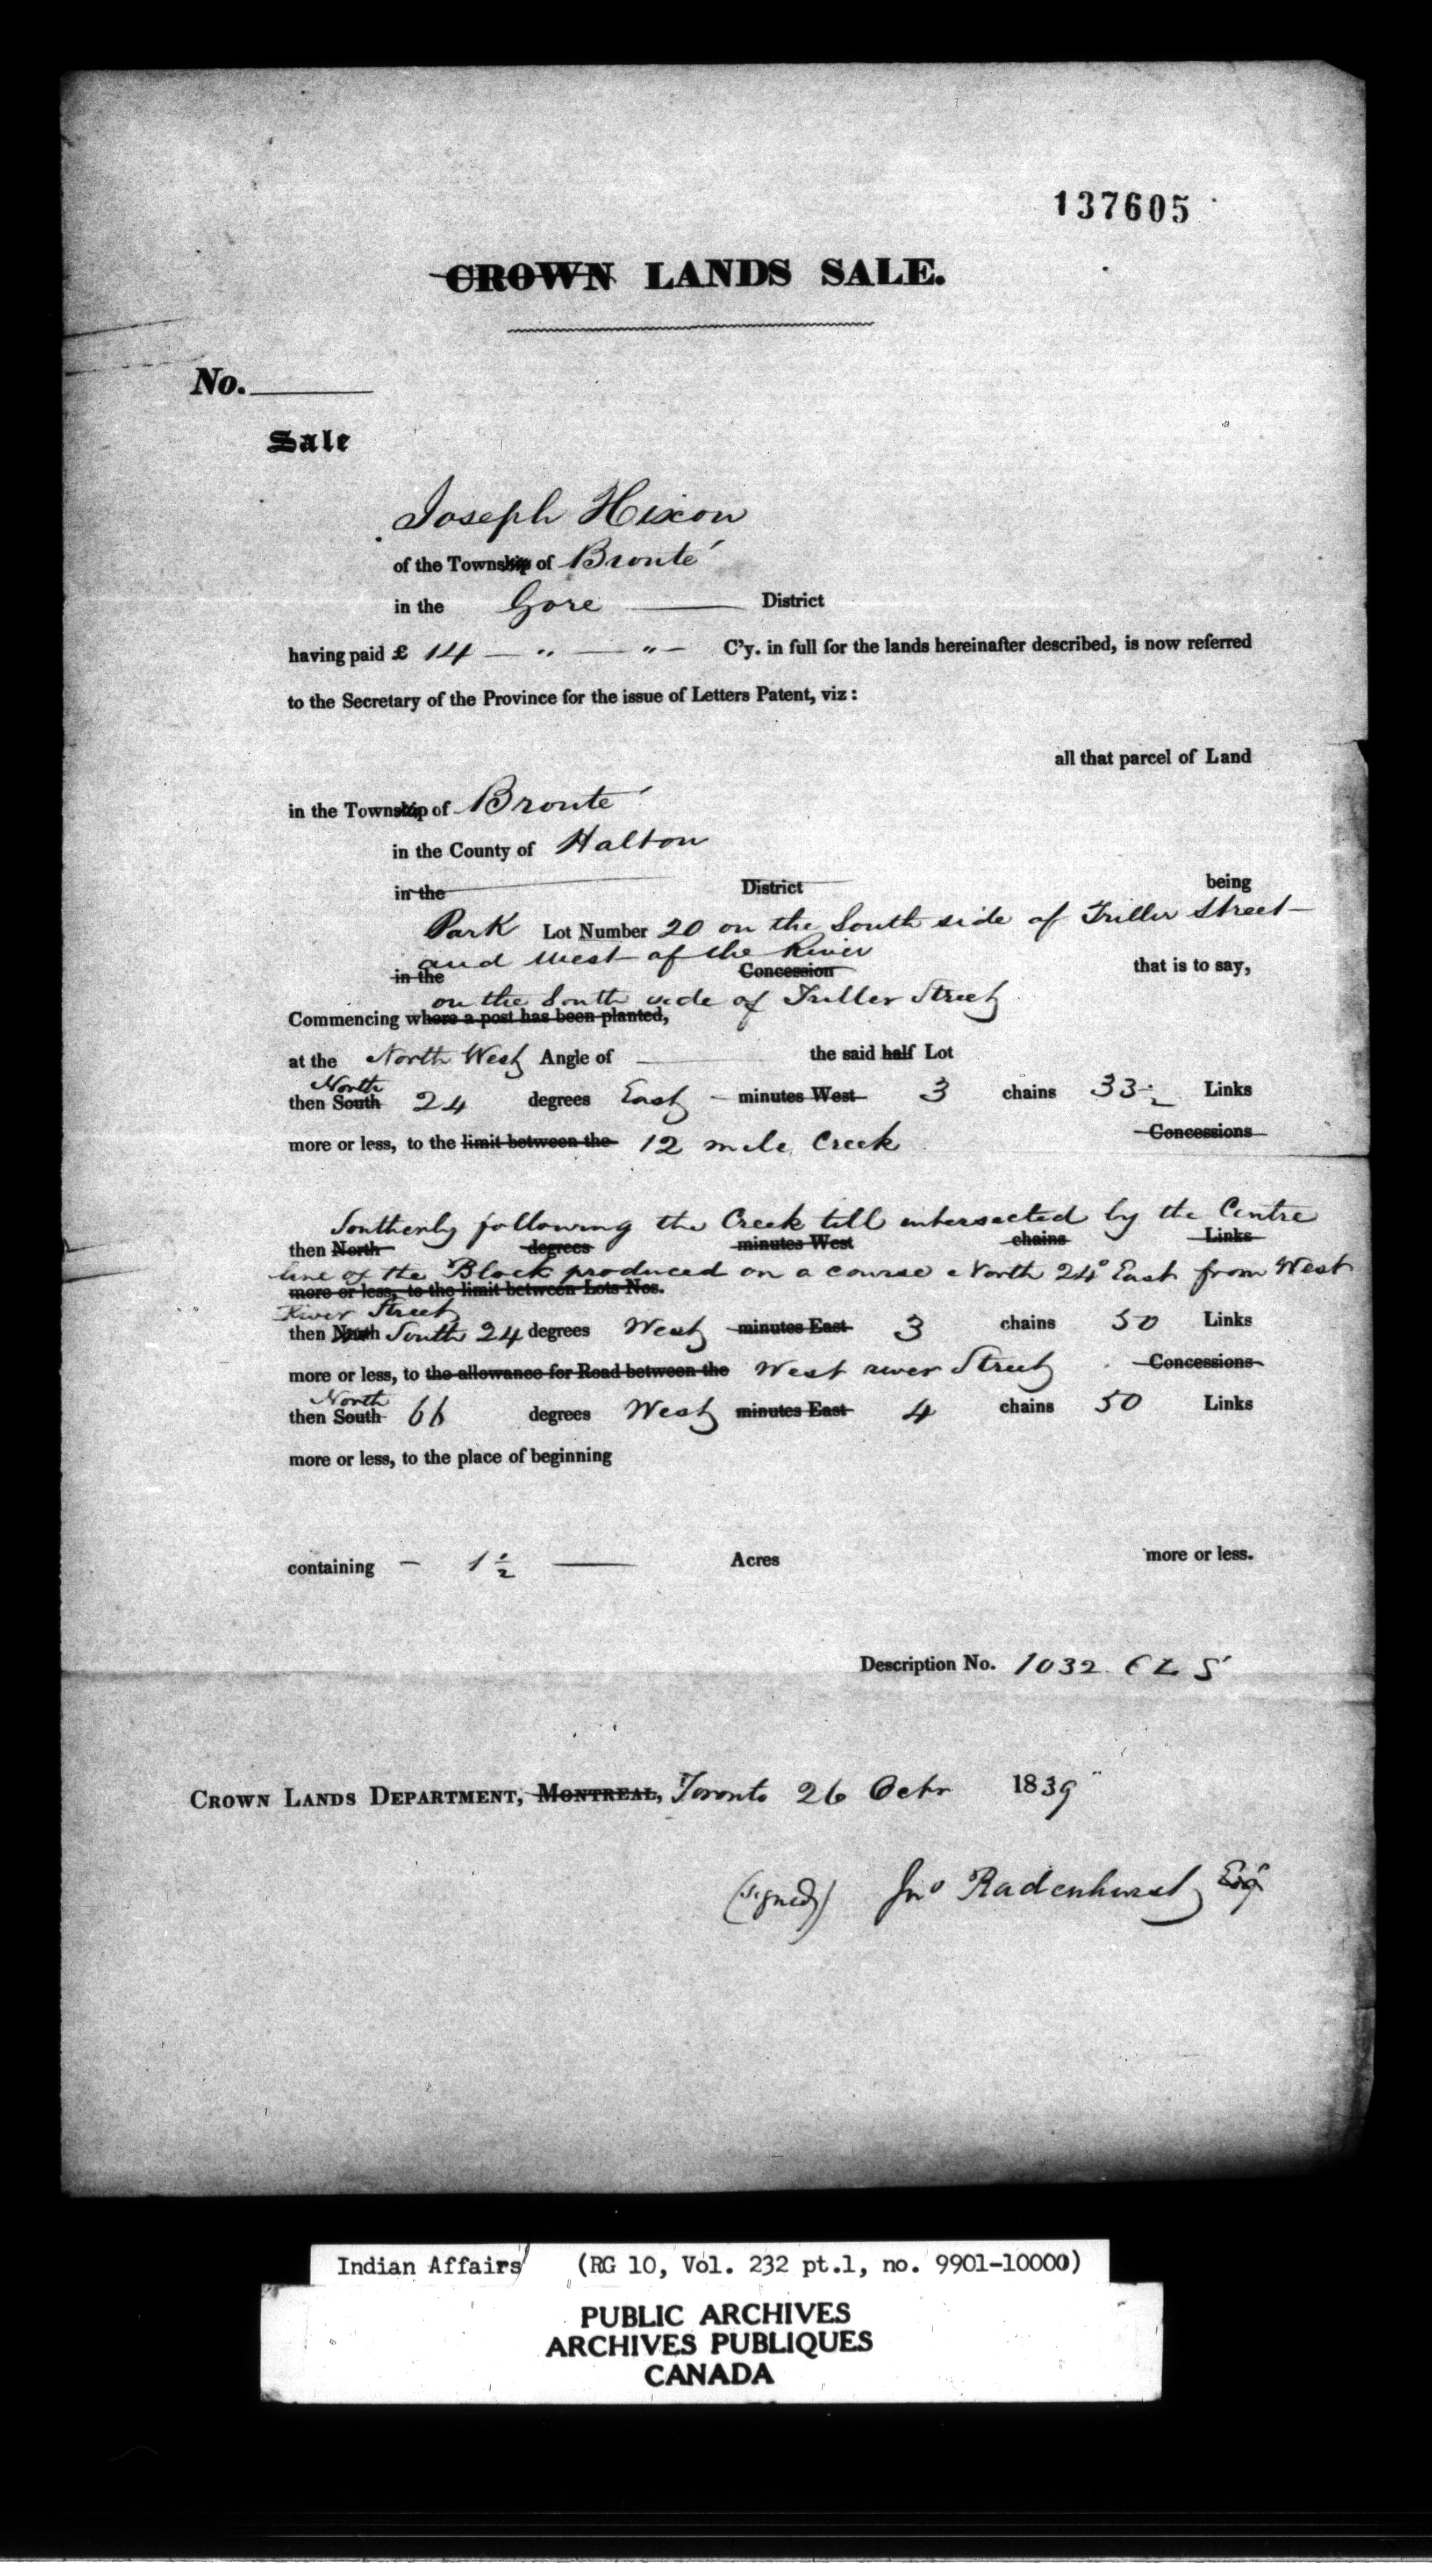 137605
CROWN LANDS SALE.
No.
Sale
Joseph Hixon
of the Township of Bronté
in the Gore District
having paid £ 14 — " — " — C'y. in full for the lands hereinafter described, is now referred
to the Secretary of the Province for the issue of Letters Patent, viz:
all that parcel of Land
in the Township of Bronté
in the County of Halton
in the District being
Park Lot Number 20 on the South side of Triller Street
and West of the River
in the Concession that is to say,
on the South side of Triller Street
Commencing where a post has been planted,
at the North West Angle of the said half Lot
North
then South 24 degrees East minutes West 3 chains 33 Links
more or less, to the limit between the 12 mile Creek Concessions
Southerly following the Creek till intersected by the Centre
then North degrees minutes West chains Links
line of the Block produced on a course North 24° East from West
more or less, to the limit between Lots Nos.
River Street
then North South 24 degrees West minutes East 3 chains 50 Links
more or less, to the allowance for Road between the West river Street Concessions
North
then South 66 degrees West minutes East 4 chains 50 Links
more or less, to the place of beginning
containing — 1 1/2 — Acres more or less.
Description No. 1032 C L S
CROWN LANDS DEPARTMENT, MONTREAL, Toronto 26 Octr 1839
(signed) Jno Radenhurst Esq
Indian Affairs (RG 10, Vol. 232 pt.1, no. 9901-10000)
PUBLIC ARCHIVES
ARCHIVES PUBLIQUES
CANADA